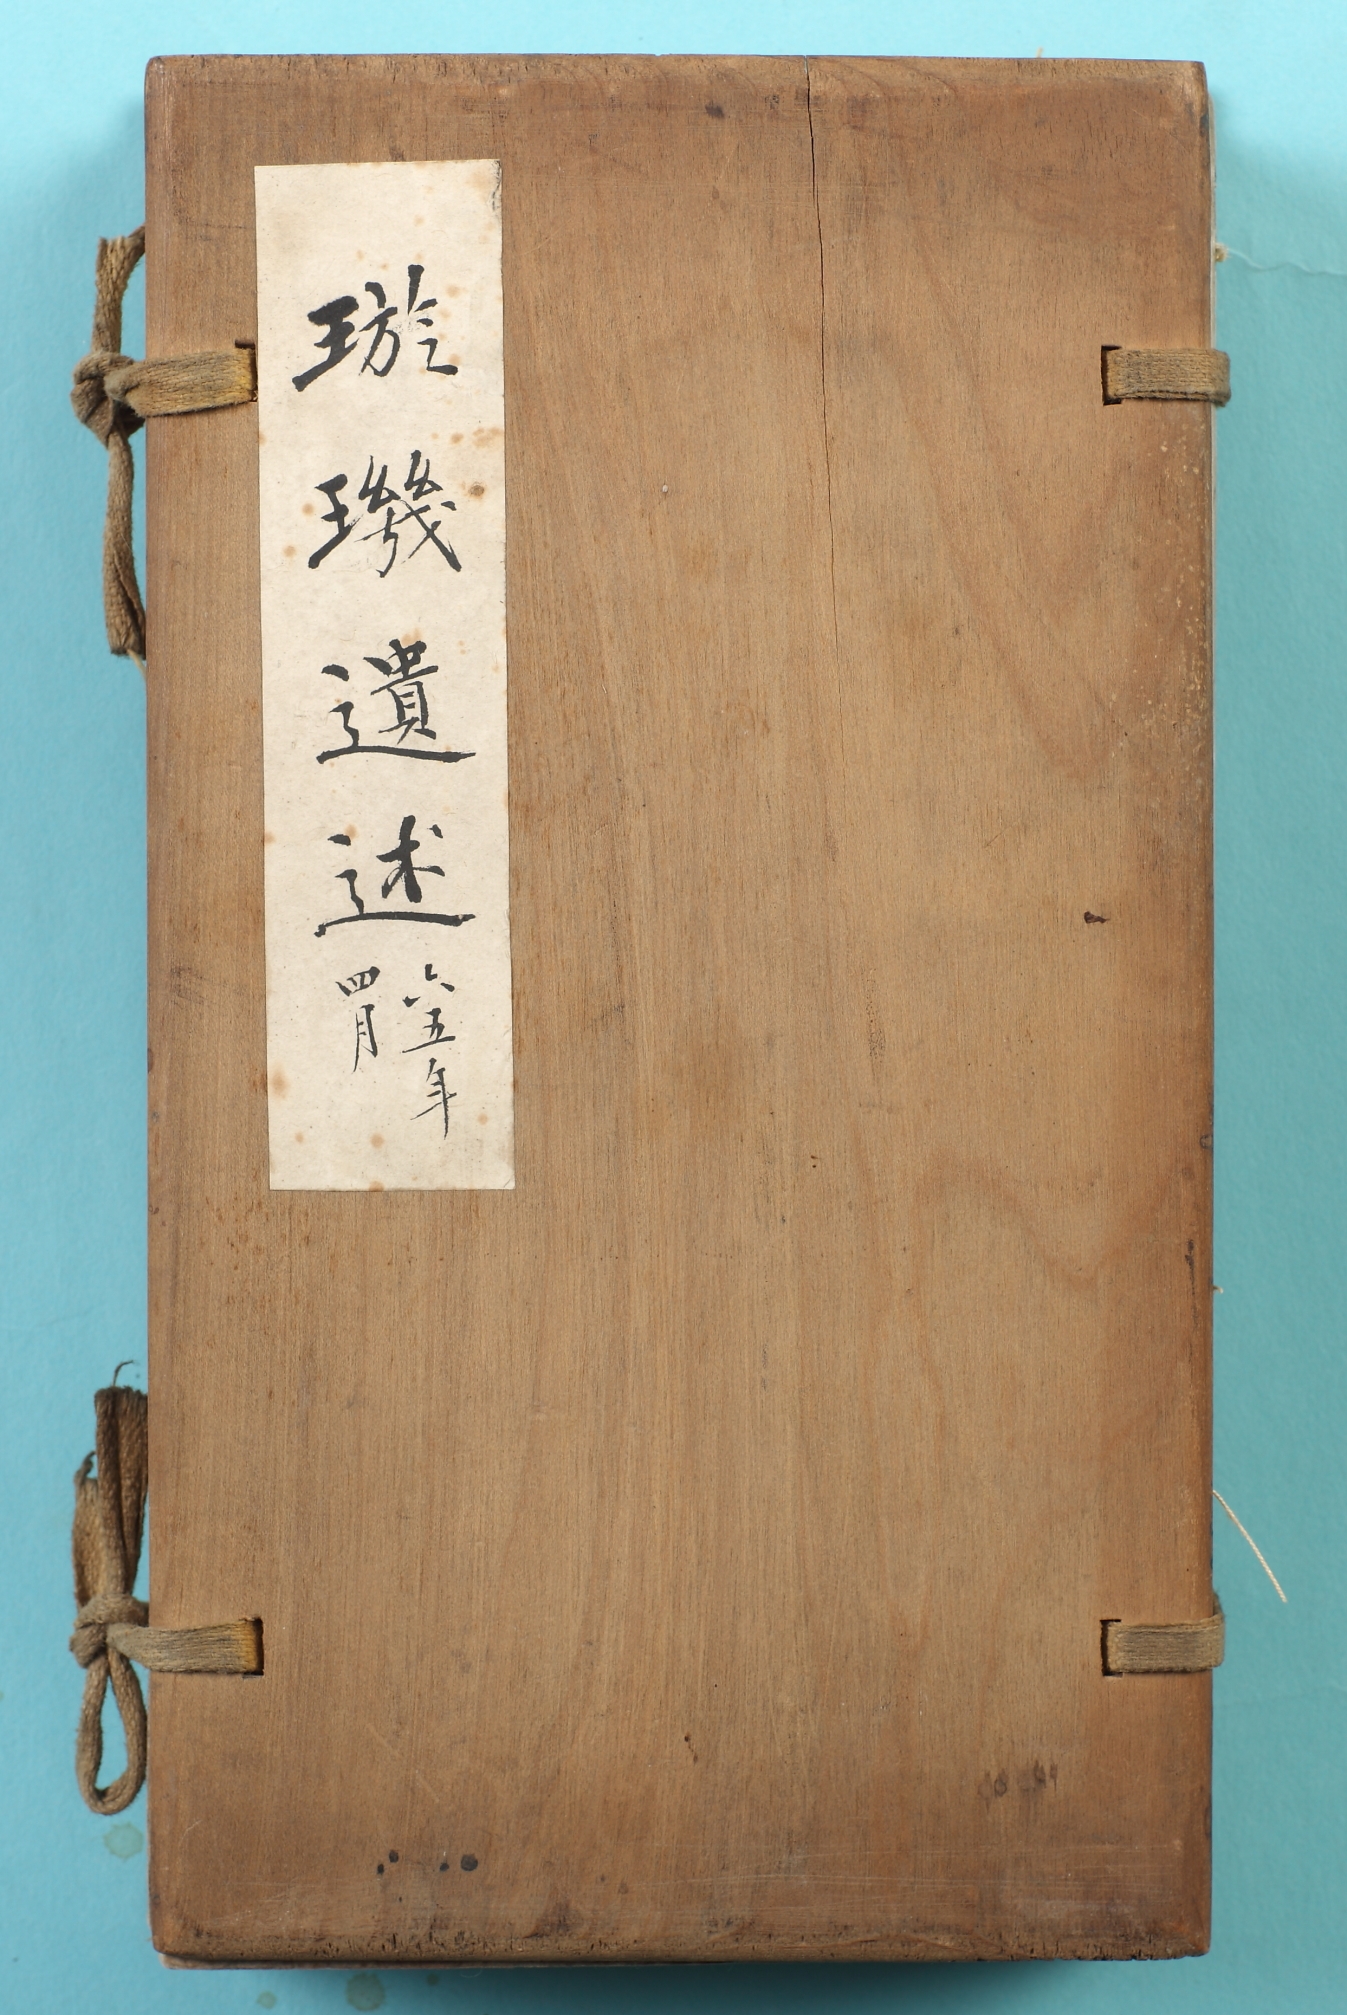 璇璣遺述
六五年
四月